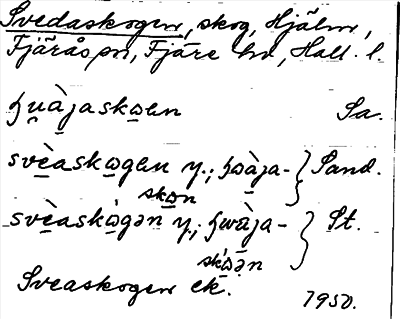 Svedaskogen, skog, Hjälm,
Fjärås sn, Fjäre hd, Hall. l.
ꜧu̯àjaskɷen Sa.
svèaskɷgen y.; ꜧɷàja-
skɷn } Sand.
svèaskɷ̀gən y.; ꜧwàja-
skɷ̀ən } St.
Sveaskogen ek.
1950.